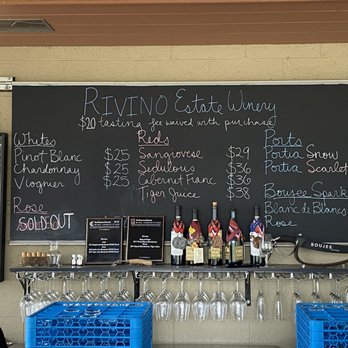 RIVINO Estate Winery
$20 tasting fee waived with purchase
Whites
Pinot Blanc $25
Chardonnay $25
Viognier $25
Rose
SOLD OUT
Reds
Sangiovese $29
Sedulous $36
Cabernet Franc $36
Tiger Juice $38
Ports
Portia Snow
Portia Scarlet
Boujee Spark
Blanc de Blancs
Rose
BOUJEE